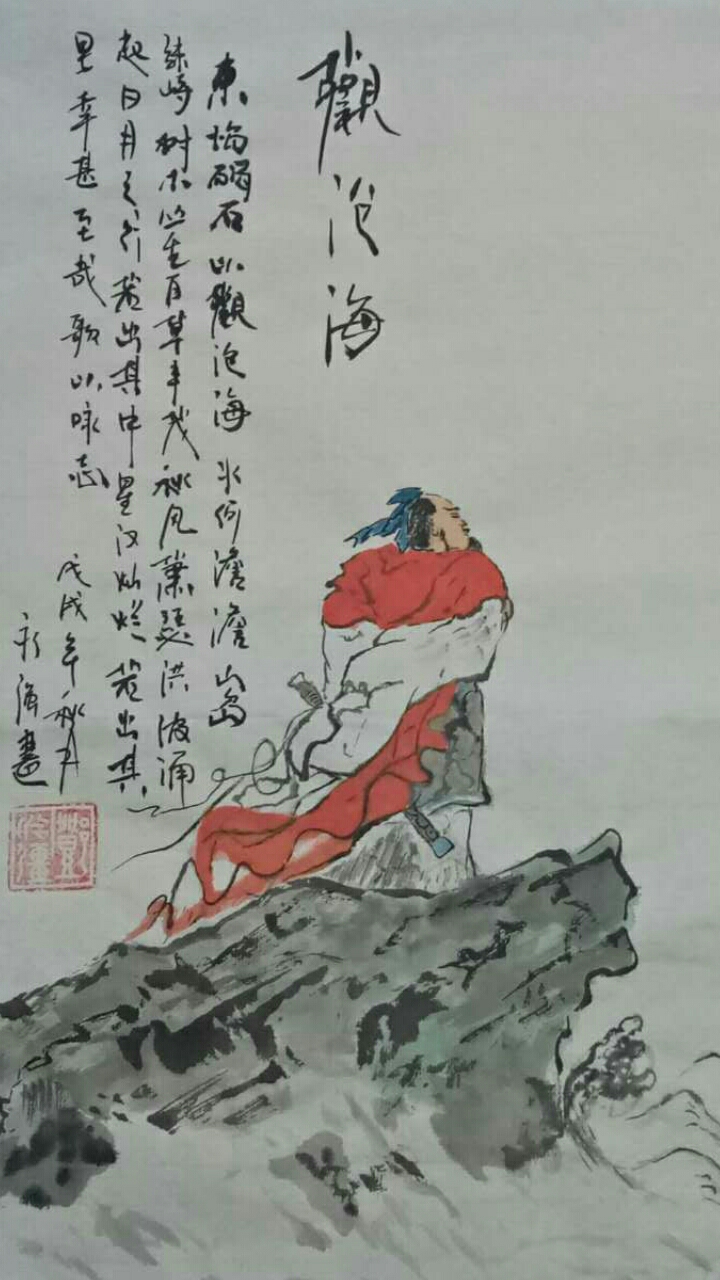 觀沧海
東临碣石以觀沧海水何澹澹山岛
竦峙树木丛生百草丰茂秋风萧瑟洪波涌
起日月之行若出其中星汉灿烂若出其
里幸甚至哉歌以咏志
戊戌年秋月
海畫